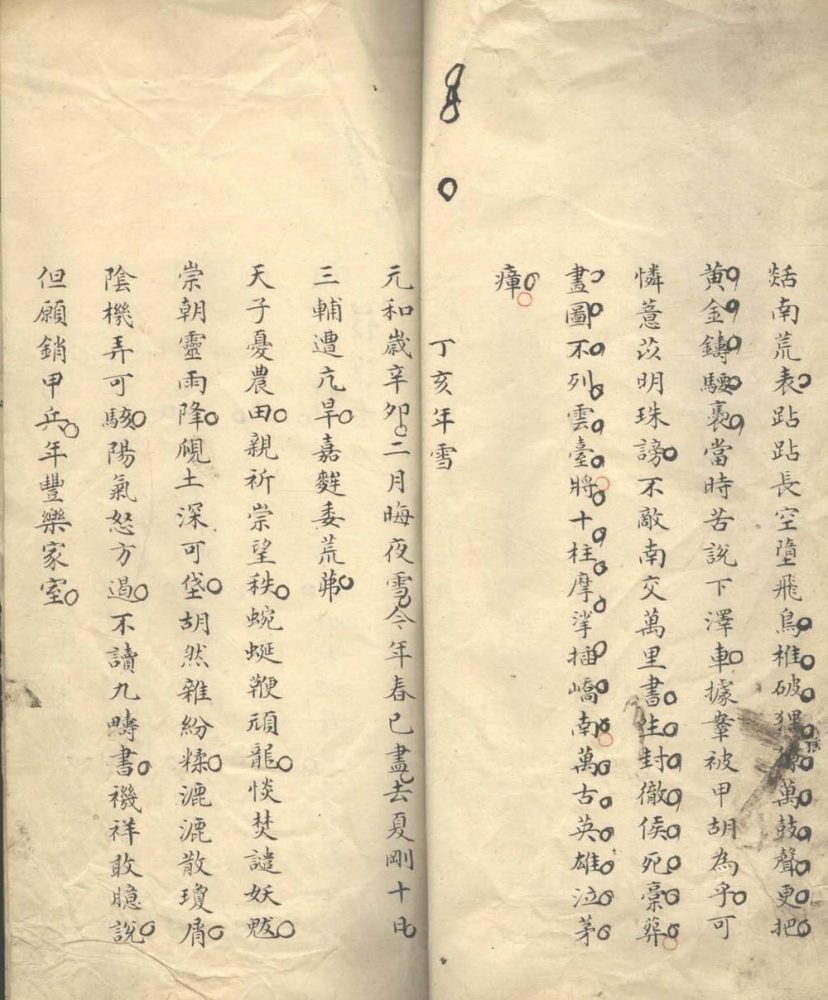 𦧺南荒表跕跕長空墮飛鳥椎破狸獠萬鼓聲更把
黄金鑄騕褭當時苦說下澤車據鞌被甲胡為乎可
憐薏苡明珠謗不敵南交萬里書生封徹侯死稾葬
畫圖不列雲臺將十柱摩挲插嶠南萬古英雄泣茅
瘴
丁亥年雪
元和歲辛卯二月晦夜雪今年春已盡去夏剛十日
三輔遭亢旱嘉麰委荒茀
天子憂農田親祈崇望秩蜿蜒鞭頑龍惔焚譴妖魃
崇朝靈雨降覛土深可垡胡然雜紛糅漉漉散瓊屑
陰機弄可駭陽氣怒方遏不讀九疇書禨祥敢臆說
但願銷甲兵年豐樂家室